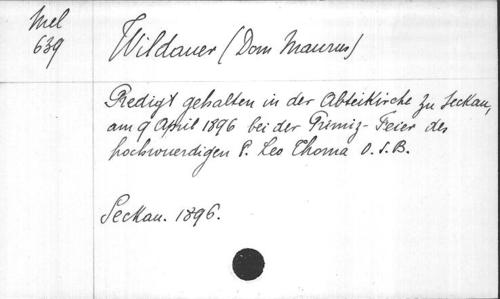 Mel
639
Wildauer (Dom Maurus)
Predigt gehalten in der Abteikirche zu Seckau,
am 9 April 1896 bei der Primiz-Feier des
hochwuerdigen P. Leo Thoma O.S.B.
Seckau. 1896.